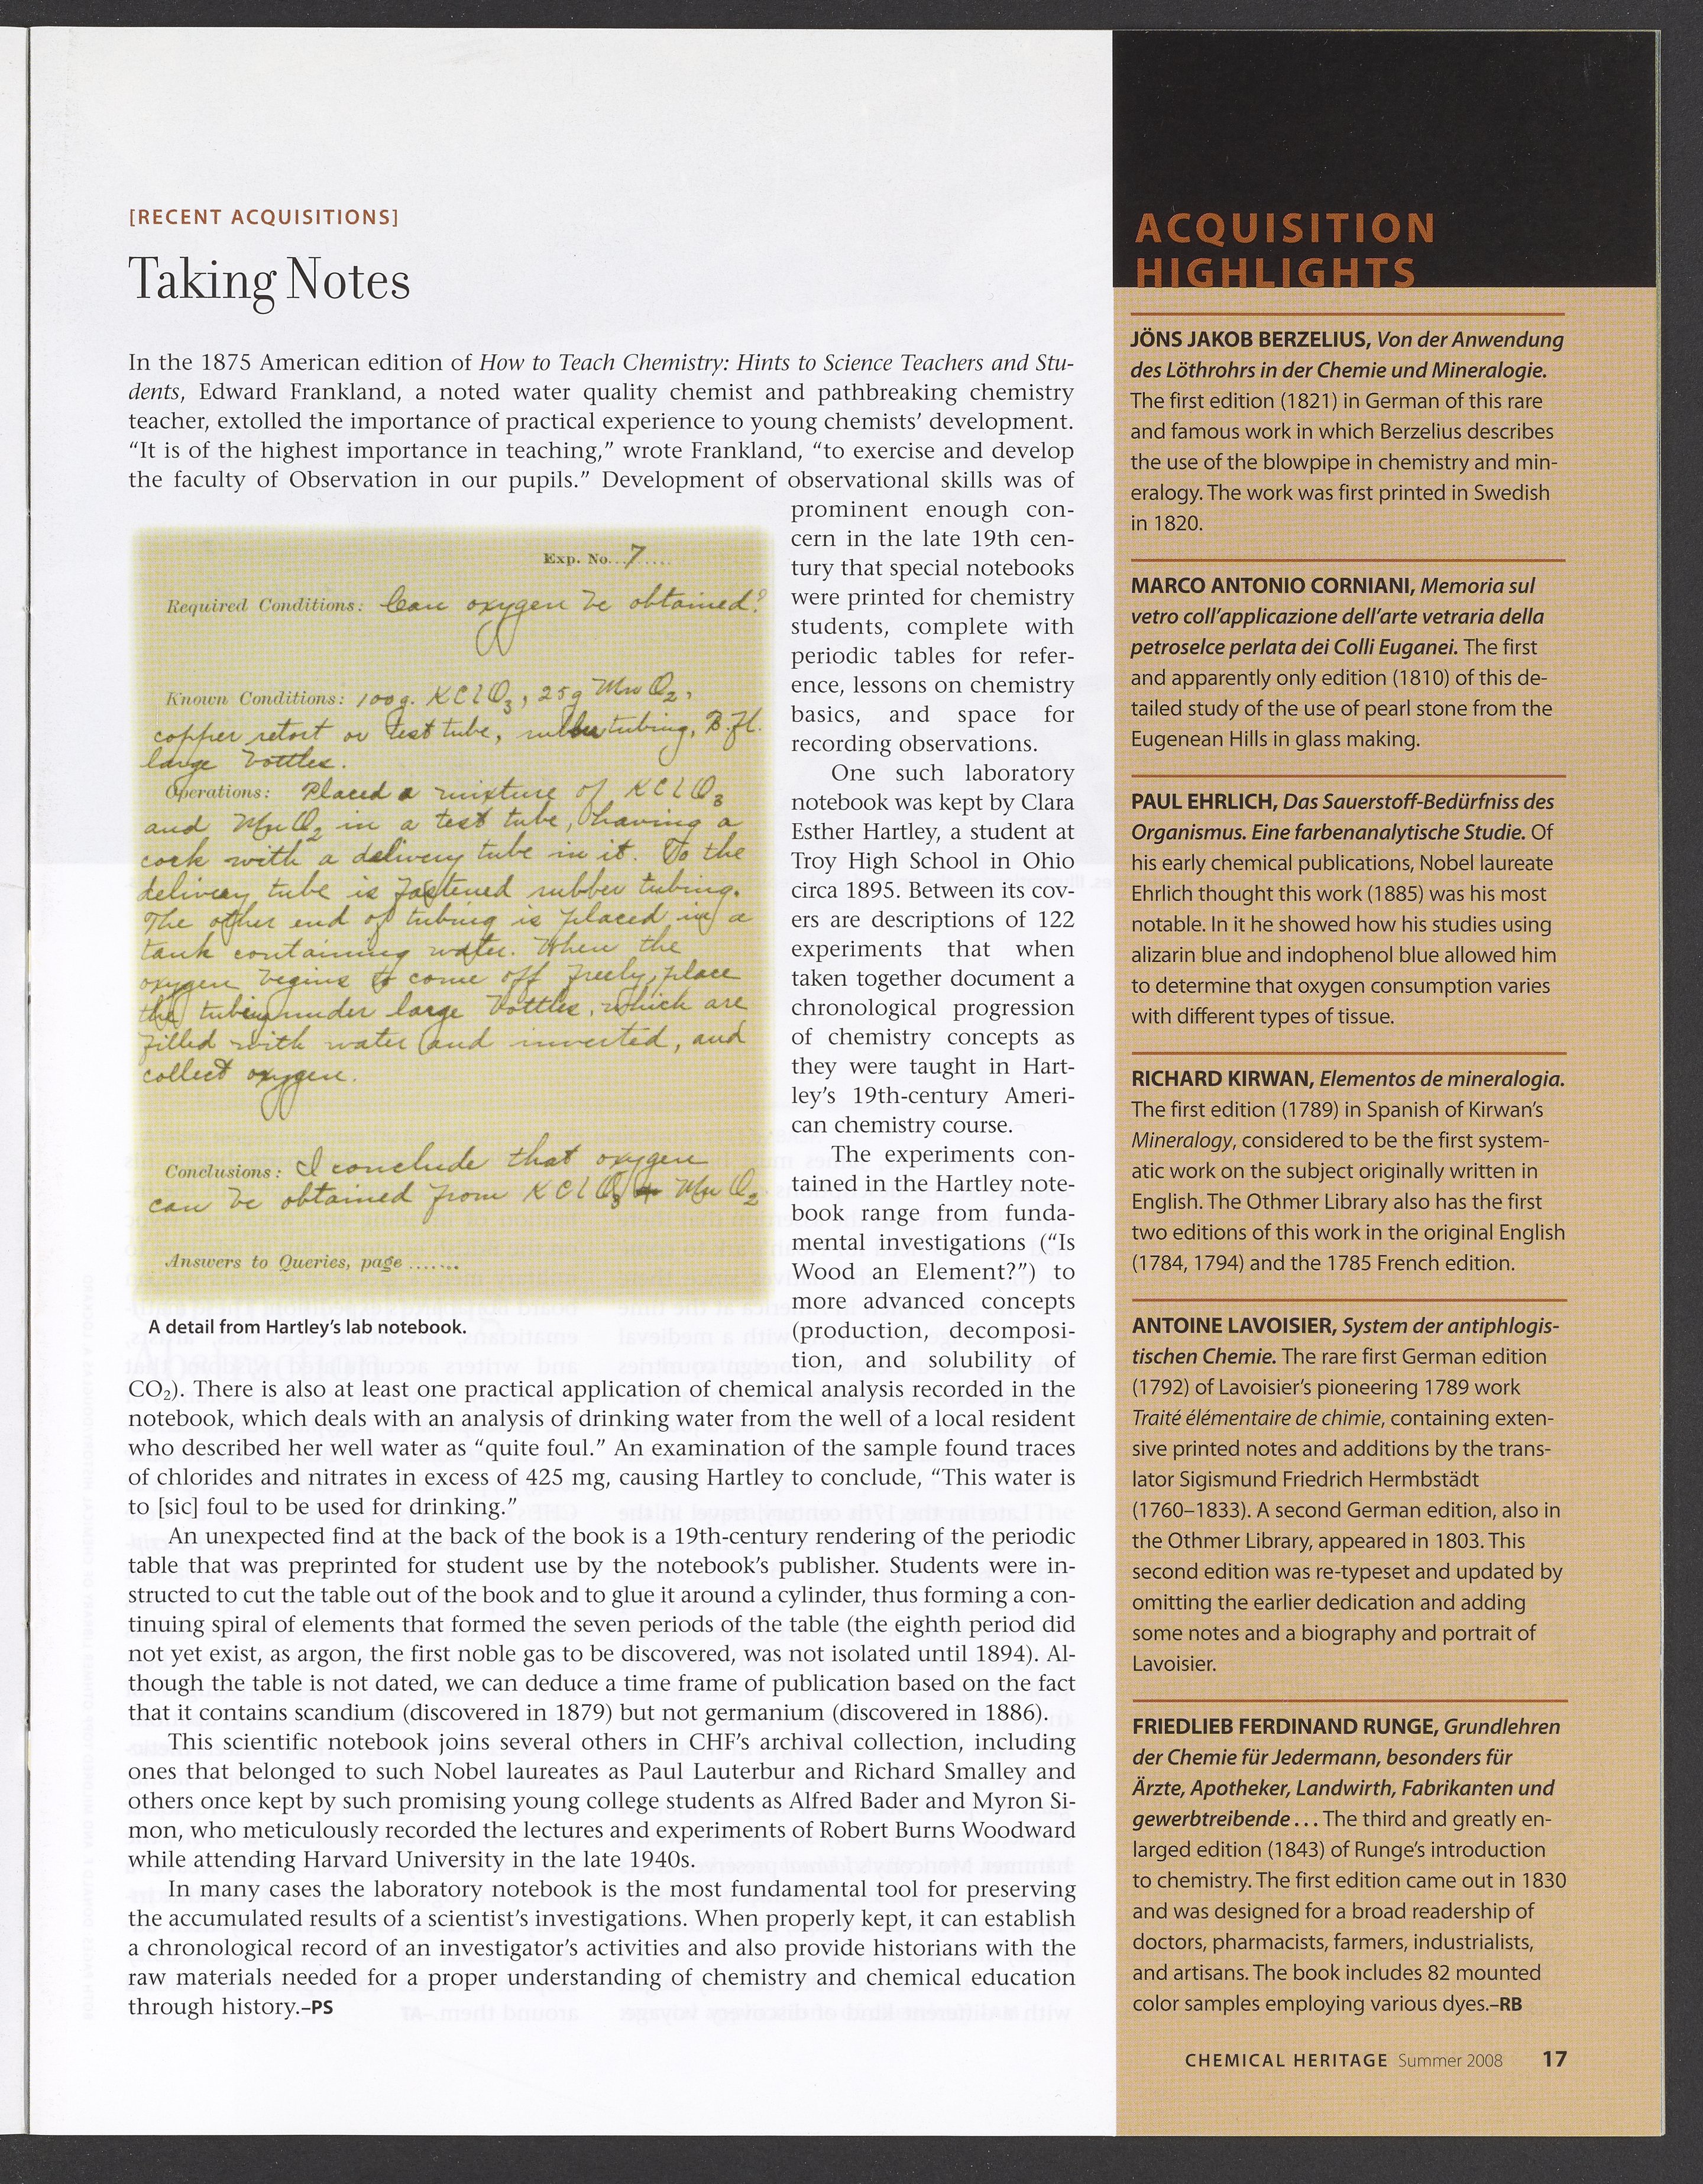 [RECENT ACQUISITIONS]
Taking Notes
In the 1875 American edition of How to Teach Chemistry: Hints to Science Teachers and Stu-
dents, Edward Frankland, a noted water quality chemist and pathbreaking chemistry
teacher, extolled the importance of practical experience to young chemists’ development.
“It is of the highest importance in teaching,” wrote Frankland, “to exercise and develop
the faculty of Observation in our pupils.” Development of observational skills was of
prominent enough con-
cern in the late 19th cen-
tury that special notebooks
were printed for chemistry
students, complete with
periodic tables for refer-
ence, lessons on chemistry
basics, and space for
recording observations.
One such laboratory
notebook was kept by Clara
Esther Hartley, a student at
Troy High School in Ohio
circa 1895. Between its cov-
ers are descriptions of 122
experiments that when
taken together document a
chronological progression
of chemistry concepts as
they were taught in Hart-
ley’s 19th-century Ameri-
can chemistry course.
The experiments con-
tained in the Hartley note-
book range from funda-
mental investigations (“Is
Wood an Element?”) to
more advanced concepts
(production, decomposi-
tion, and solubility of
CO₂). There is also at least one practical application of chemical analysis recorded in the
notebook, which deals with an analysis of drinking water from the well of a local resident
who described her well water as “quite foul.” An examination of the sample found traces
of chlorides and nitrates in excess of 425 mg, causing Hartley to conclude, “This water is
to [sic] foul to be used for drinking.”
An unexpected find at the back of the book is a 19th-century rendering of the periodic
table that was preprinted for student use by the notebook’s publisher. Students were in-
structed to cut the table out of the book and to glue it around a cylinder, thus forming a con-
tinuing spiral of elements that formed the seven periods of the table (the eighth period did
not yet exist, as argon, the first noble gas to be discovered, was not isolated until 1894). Al-
though the table is not dated, we can deduce a time frame of publication based on the fact
that it contains scandium (discovered in 1879) but not germanium (discovered in 1886).
This scientific notebook joins several others in CHF’s archival collection, including
ones that belonged to such Nobel laureates as Paul Lauterbur and Richard Smalley and
others once kept by such promising young college students as Alfred Bader and Myron Si-
mon, who meticulously recorded the lectures and experiments of Robert Burns Woodward
while attending Harvard University in the late 1940s.
In many cases the laboratory notebook is the most fundamental tool for preserving
the accumulated results of a scientist’s investigations. When properly kept, it can establish
a chronological record of an investigator’s activities and also provide historians with the
raw materials needed for a proper understanding of chemistry and chemical education
through history.–PS
Exp. No...7.....
Required Conditions: Can oxygen be obtained?
Known Conditions: 100g. KClO₃, 25g MnO₂,
copper retort or test tube, rubber tubing, B.fl.
large bottles.
Operations: Placed a mixture of KClO₃
and MnO₂ in a test tube, having a
cork with a delivery tube in it. To the
delivery tube is fastened rubber tubing.
The other end of tubing is placed in a
tank containing water. When the
oxygen begins to come off freely, place
the tubing under large bottles, which are
filled with water and inverted, and
collect oxygen.
Conclusions: I conclude that oxygen
can be obtained from KClO₃ + MnO₂
Answers to Queries, page .......
A detail from Hartley’s lab notebook.
ACQUISITION
HIGHLIGHTS
JÖNS JAKOB BERZELIUS, Von der Anwendung
des Löthrohrs in der Chemie und Mineralogie.
The first edition (1821) in German of this rare
and famous work in which Berzelius describes
the use of the blowpipe in chemistry and min-
eralogy. The work was first printed in Swedish
in 1820.
MARCO ANTONIO CORNIANI, Memoria sul
vetro coll’applicazione dell’arte vetraria della
petroselce perlata dei Colli Euganei. The first
and apparently only edition (1810) of this de-
tailed study of the use of pearl stone from the
Eugenean Hills in glass making.
PAUL EHRLICH, Das Sauerstoff-Bedürfniss des
Organismus. Eine farbenanalytische Studie. Of
his early chemical publications, Nobel laureate
Ehrlich thought this work (1885) was his most
notable. In it he showed how his studies using
alizarin blue and indophenol blue allowed him
to determine that oxygen consumption varies
with different types of tissue.
RICHARD KIRWAN, Elementos de mineralogia.
The first edition (1789) in Spanish of Kirwan’s
Mineralogy, considered to be the first system-
atic work on the subject originally written in
English. The Othmer Library also has the first
two editions of this work in the original English
(1784, 1794) and the 1785 French edition.
ANTOINE LAVOISIER, System der antiphlogis-
tischen Chemie. The rare first German edition
(1792) of Lavoisier’s pioneering 1789 work
Traité élémentaire de chimie, containing exten-
sive printed notes and additions by the trans-
lator Sigismund Friedrich Hermbstädt
(1760–1833). A second German edition, also in
the Othmer Library, appeared in 1803. This
second edition was re-typeset and updated by
omitting the earlier dedication and adding
some notes and a biography and portrait of
Lavoisier.
FRIEDLIEB FERDINAND RUNGE, Grundlehren
der Chemie für Jedermann, besonders für
Ärzte, Apotheker, Landwirth, Fabrikanten und
gewerbtreibende . . . The third and greatly en-
larged edition (1843) of Runge’s introduction
to chemistry. The first edition came out in 1830
and was designed for a broad readership of
doctors, pharmacists, farmers, industrialists,
and artisans. The book includes 82 mounted
color samples employing various dyes.–RB
CHEMICAL HERITAGE Summer 2008 17